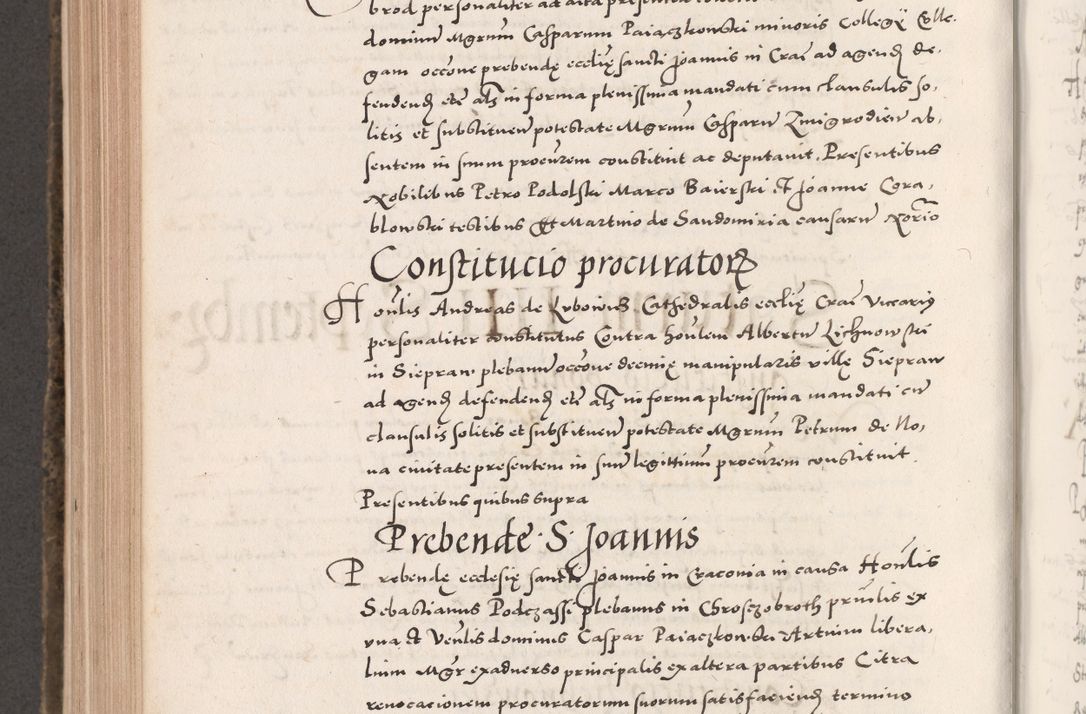 brod personaliter ad acta
dominum Mgrum Casparum Paiaczkowski minoris Collegÿ Colle-
gam occone prebendę ecclię sancti Joannis in Crac ad agend de-
fendend etc als in forma plenissima mandati cum clausulis so-
litis et substituen potestate Mgrum Casparu Zmigrodien ab-
sentem in suum procurem constituit ac deputauit. Presentibus
Nobilibus Petro Podolski Marco Baierski et Joanne Cora-
blowski testibus Et Martino de Sandomiria causaru Norio
Constitucio procurator
Honlis Andreas de Lubowicz Cathedralis ecclię Crac Viccarius
personaliter constitutus Contra honlem Albertu Lichnowski
in Siepraw plebanu occone decimę manipularis villę Siepraw
ad agend defendend etc als in forma plenissima mandati cu
clausulis solitis et substituen potestate Mgrum Petrum de No-
ua ciuitate presentem in suu legittimu procurem constituit.
Presentibus quibus supra
Prebende S. Joannis
Prebendę ecclesię sancti Joannis in Craconia in causa Honlis
Sebastianus Podczassi plebanus in Chrosczobroth prinlis ex
vna et Venlis dominus Caspar Paiaczkowski Artium libera-
lium Mgr ex aduerso principalis ex altera partibus Citra
reuocacionem procuratorum suorum satisfaciend termino